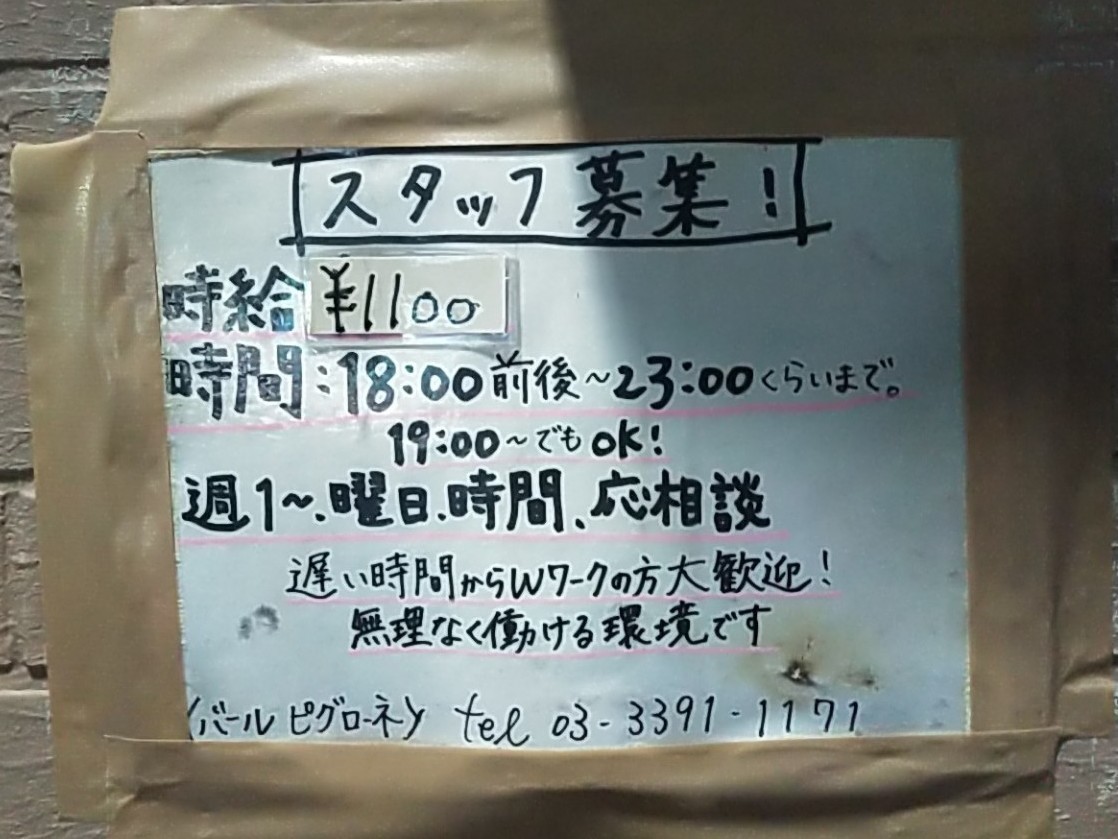 スタッフ募集!
時給 ¥1100
時間:18:00前後~23:00くらいまで。
19:00~でもOK!
週1~、曜日、時間、応相談
遅い時間からWワークの方大歓迎!
無理なく働ける環境です
〈バール ピグローネ〉 tel 03-3391-1171